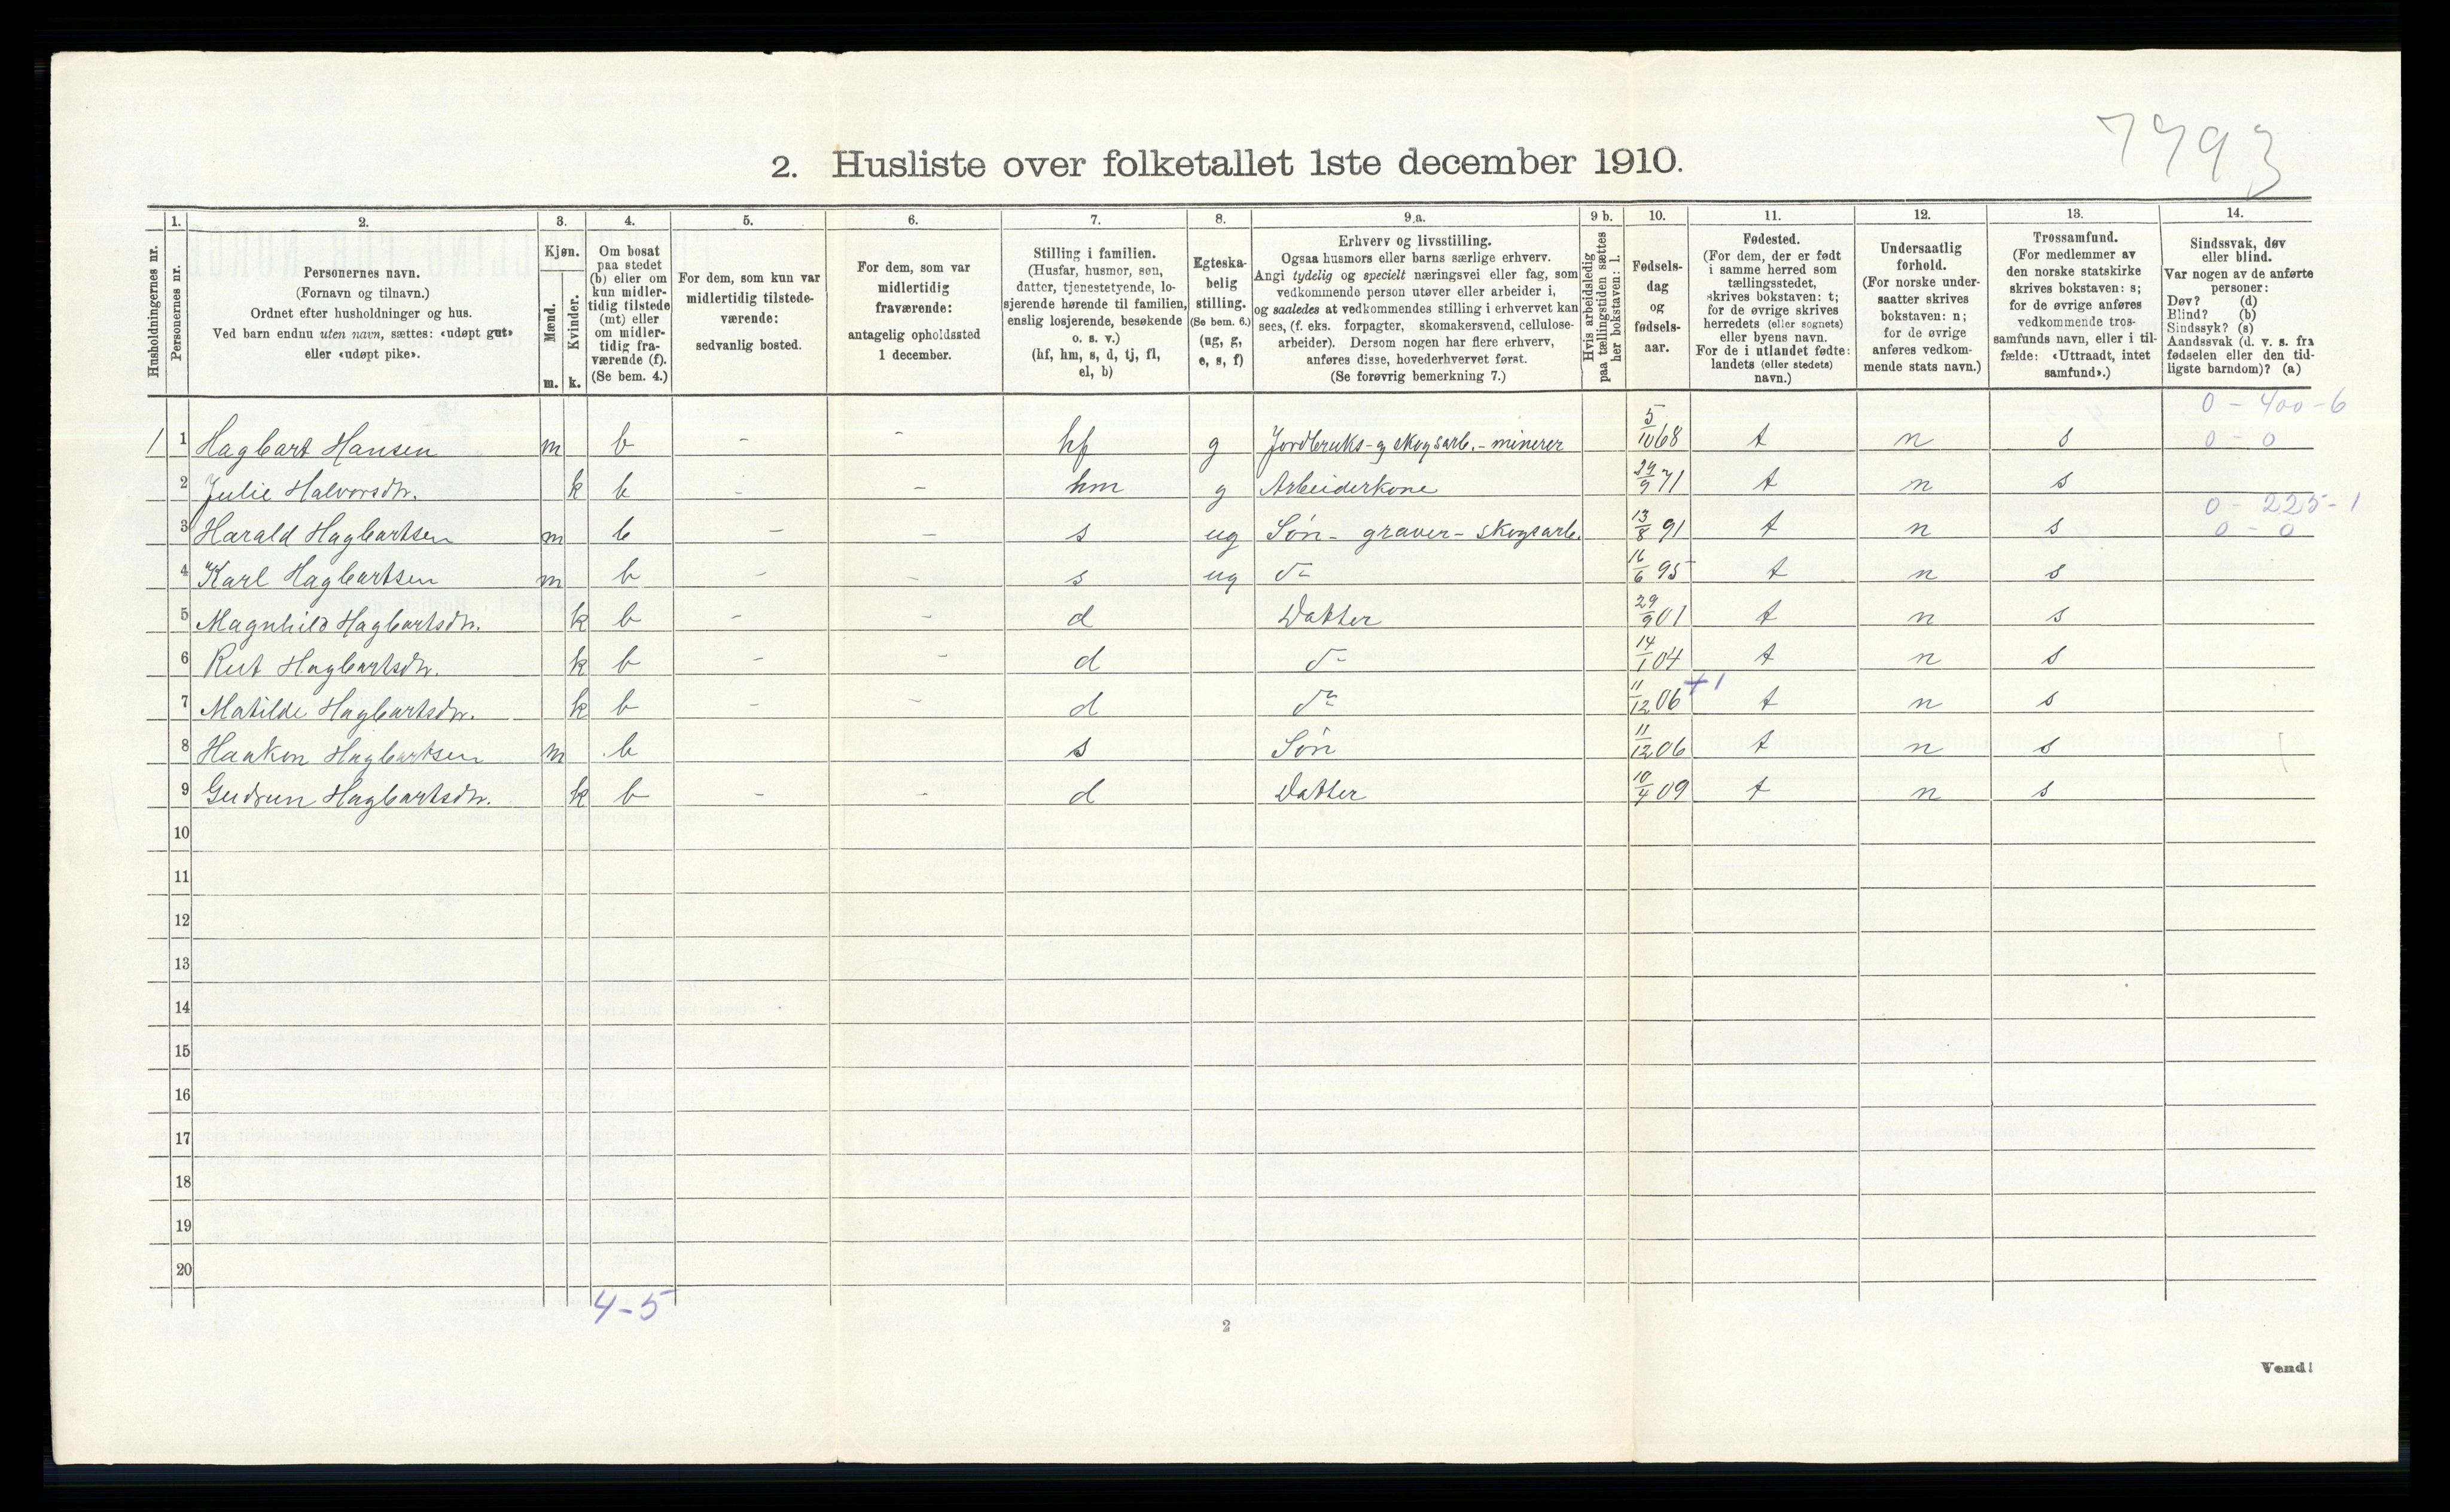 7793
2. Husliste over folketallet 1ste december 1910.
Husholdningernes nr.
1. Personernes nr.
2. Personernes navn.
(Fornavn og tilnavn.)
Ordnet efter husholdninger og hus.
Ved barn endnu uten navn, sættes: «udøpt gut»
eller «udøpt pike».
3. Kjøn.
Mænd. m.
Kvinder. k.
4. Om bosat
paa stedet
(b) eller om
kun midler-
tidig tilstede
(mt) eller
om midler-
tidig fra-
værende (f).
(Se bem. 4.)
5. For dem, som kun var
midlertidig tilstede-
værende:
sedvanlig bosted.
6. For dem, som var
midlertidig
fraværende:
antagelig opholdssted
1 december.
7. Stilling i familien.
(Husfar, husmor, søn,
datter, tjenestetyende, lo-
sjerende hørende til familien,
enslig losjerende, besøkende
o. s. v.)
(hf, hm, s, d, tj, fl,
el, b)
8. Egteska-
belig
stilling.
(Se bem. 6.)
(ug, g,
e, s, f)
9.a. Erhverv og livsstilling.
Ogsaa husmors eller barns særlige erhverv.
Angi tydelig og specielt næringsvei eller fag, som
vedkommende person utøver eller arbeider i,
og saaledes at vedkommendes stilling i erhvervet kan
sees, (f. eks. forpagter, skomakersvend, cellulose-
arbeider). Dersom nogen har flere erhverv,
anføres disse, hovederhvervet først.
(Se forøvrig bemerkning 7.)
9 b. Hvis arbeidsledig
paa tællingstiden sættes
her bokstaven: l.
10. Fødsels-
dag
og
fødsels-
aar.
11. Fødested.
(For dem, der er født
i samme herred som
tællingsstedet,
skrives bokstaven: t;
for de øvrige skrives
herredets (eller sognets)
eller byens navn.
For de i utlandet fødte:
landets (eller stedets)
navn.)
12. Undersaatlig
forhold.
(For norske under-
saatter skrives
bokstaven: n;
for de øvrige
anføres vedkom-
mende stats navn.)
13. Trossamfund.
(For medlemmer av
den norske statskirke
skrives bokstaven: s;
for de øvrige anføres
vedkommende tros-
samfunds navn, eller i til-
fælde: «Uttraadt, intet
samfund».)
14. Sindssvak, døv
eller blind.
Var nogen av de anførte
personer:
Døv? (d)
Blind? (b)
Sindssyk? (s)
Aandssvak (d. v. s. fra
fødselen eller den tid-
ligste barndom)? (a)
0 - 400 - 6
1 1 Hagbart Hansen m b - - hf g Jordbruks- og skogsarb. - minerer 5/10 68 t n s 0 - 0
2 Julie Halvorsdtr. k b - - hm g Arbeiderkone 24/9 71 t n s
0 - 225 - 1
3 Harald Hagbartsen m b - - s ug Søn - graver - skogsarb. 13/8 91 t n s 0 - 0
4 Karl Hagbartsen m b - - s ug do 16/6 95 t n s
5 Magnhild Hagbartsdtr. k b - - d Datter 29/9 01 t n s
6 Rut Hagbartsdtr. k b - - d do 14/1 04 t n s
7 Matilde Hagbartsdtr. k b - - d do 11/12 06 +1 t n s
8 Haakon Hagbartsen m b s Søn 11/12 06 t n s
9 Gudrun Hagbartsdtr. k b - - d Datter 10/4 09 t n s
10
11
12
13
14
15
16
17
18
19
20
4-5
2
Vend!